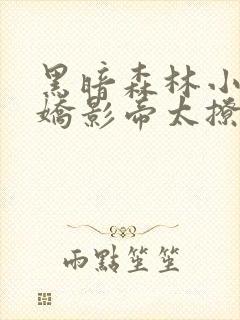 黑暗森林小
嬌影帝太撩
雨點笙笙